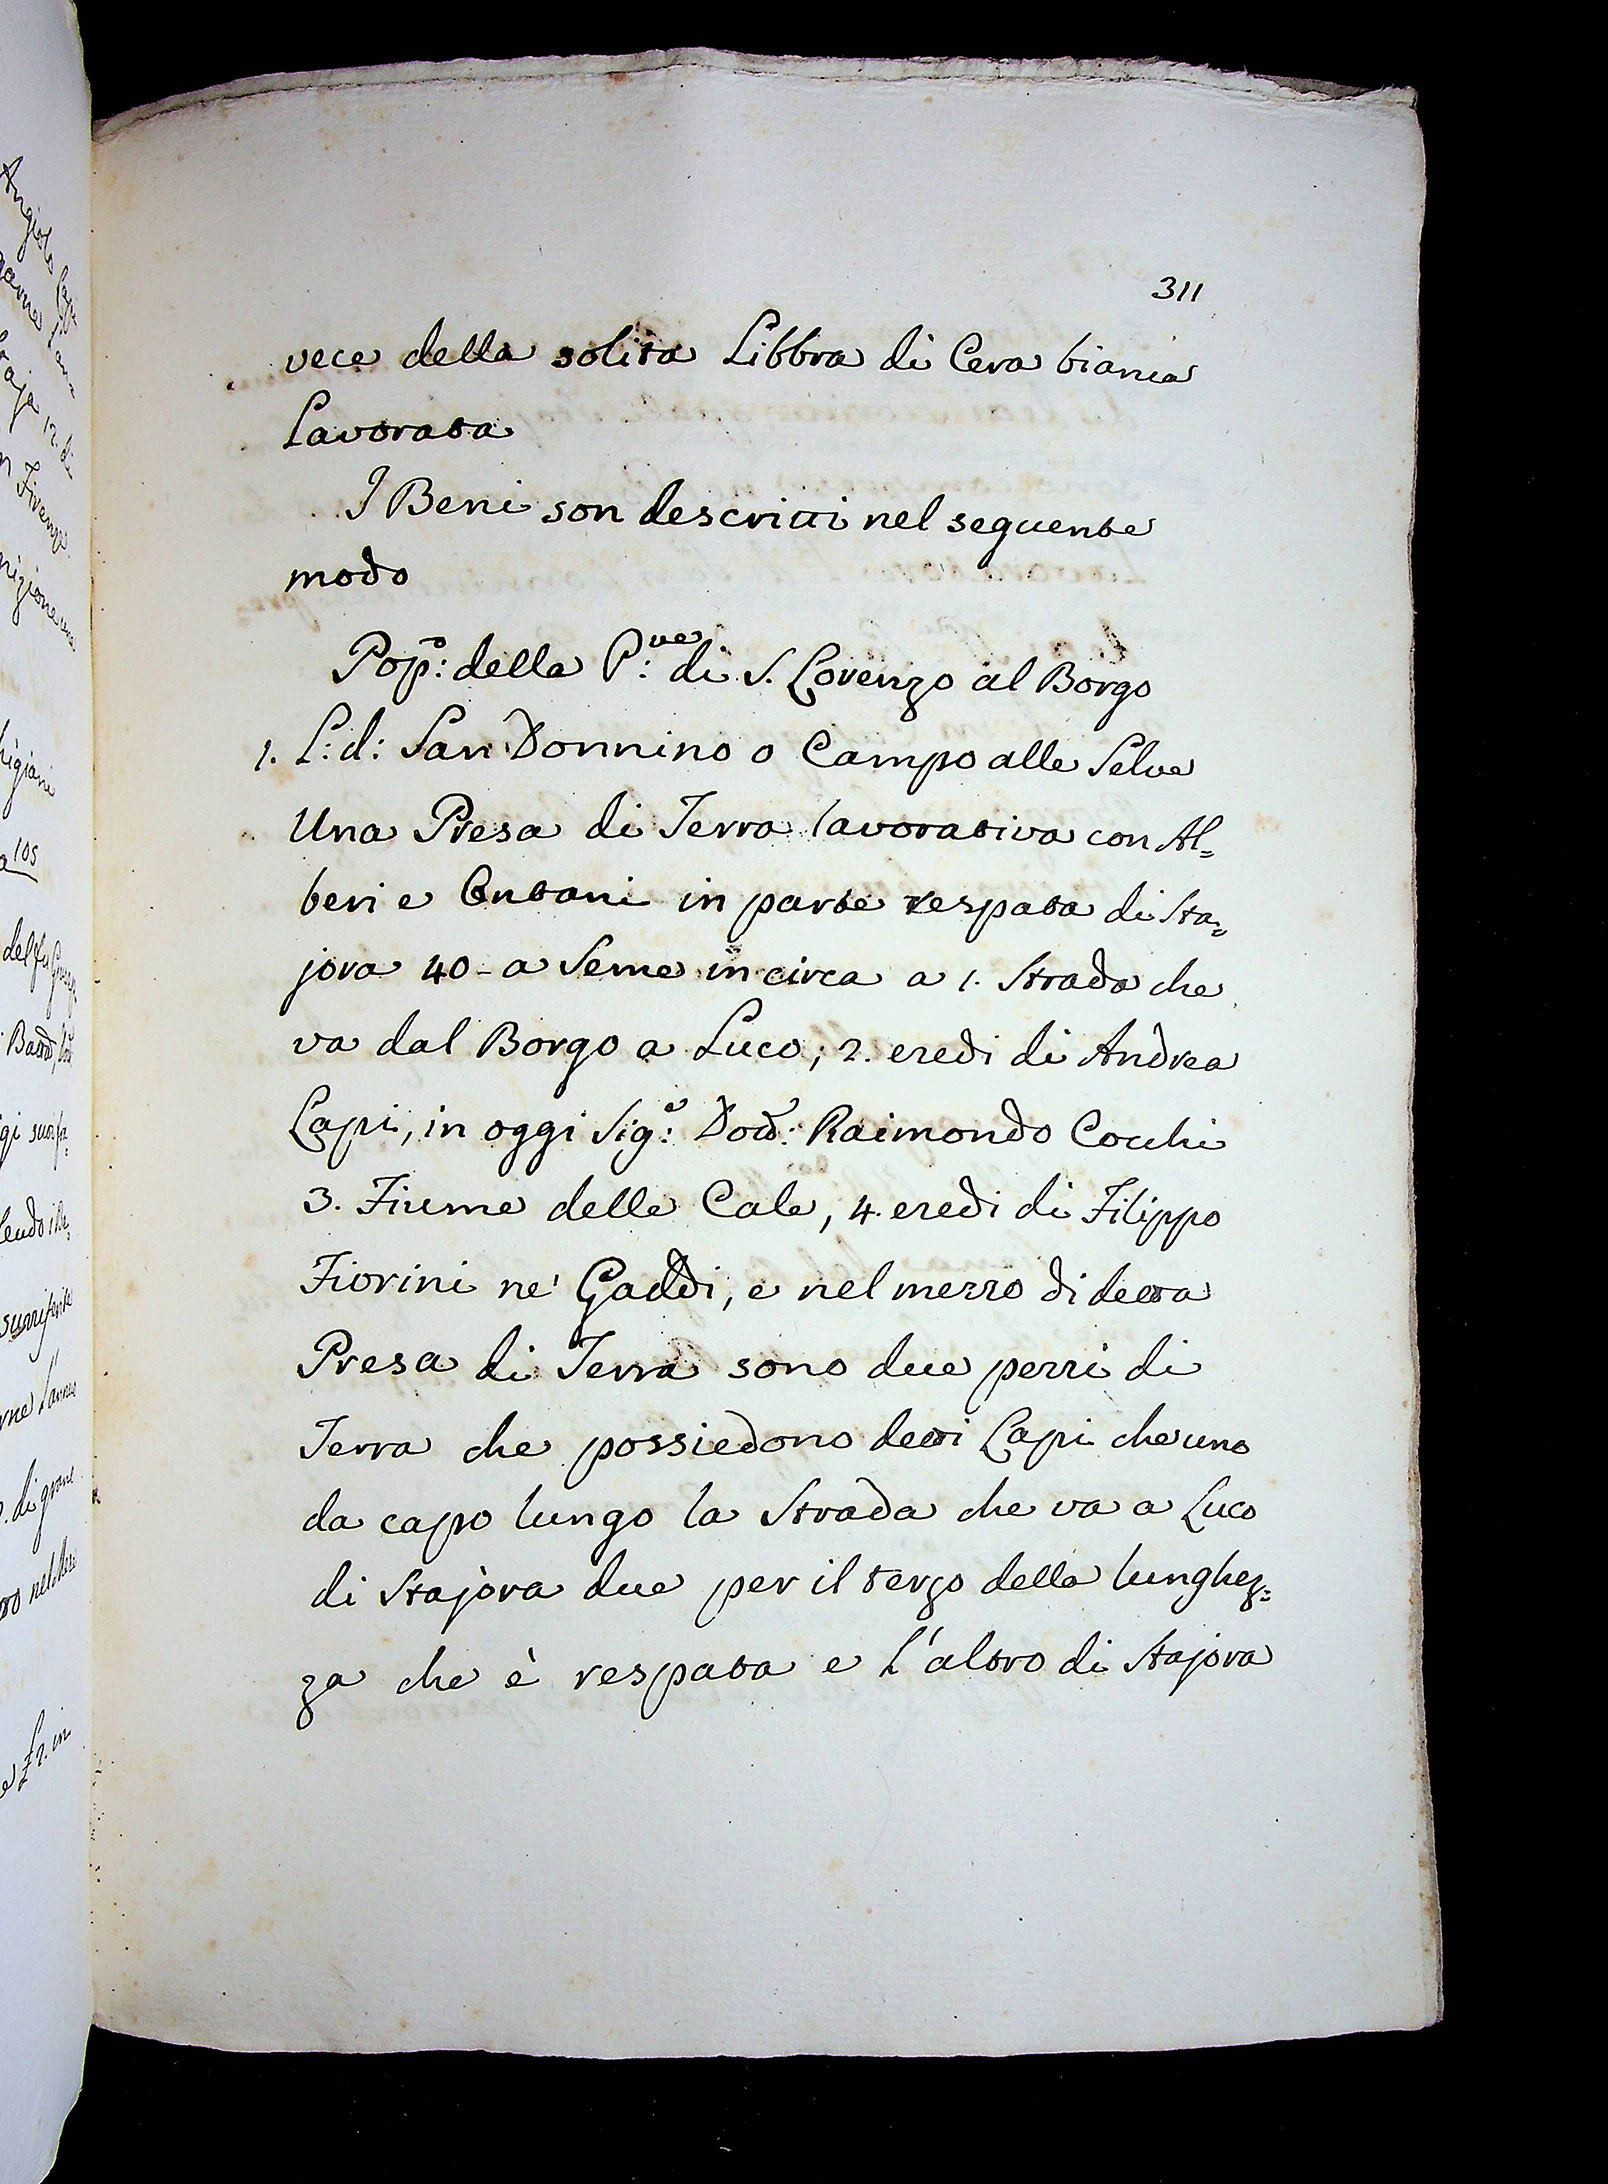 311
vece della solita Libbra di Cera bianca
Lavorata
I Beni son descritti nel seguente
modo
Pop.o: della P:ve di S. Lorenzo al Borgo
1. L: d: San Donnino o Campo alle Selve
Una Presa di Terra lavorativa con Al=
beri e Ontani in parte respata di Sta=
jora 40 - a Seme in circa a 1. Strada che
va dal Borgo a Luco; 2. eredi di Andrea
Lapi, in oggi Sig.e: Dott.e: Raimondo Cocchi
3. Fiume delle Cale, 4. eredi di Filippo
Fiorini ne' Gaddi, e nel mezzo di detta
Presa di Terra sono due pezzi di
Terra che possiedono detti Lapi che uno
da capo lungo la Strada che va a Luco
di Stajora due per il terzo della lunghez=
za che è respata e l'altro di Stajora